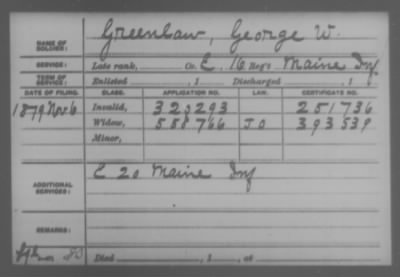 NAME OF SOLDIER: Greenlaw, George W.
SERVICE: Late rank, Co. E, 16 Reg't Maine Inf
TERM OF SERVICE: Enlisted , 1 Discharged , 1
DATE OF FILING. CLASS. APPLICATION NO. LAW. CERTIFICATE NO.
1879 Nov. 6 Invalid, 320293 251736
Widow, 558766 J O 393539
Minor,
ADDITIONAL SERVICES: E 20 Maine Inf
REMARKS:
Died , 1 , at